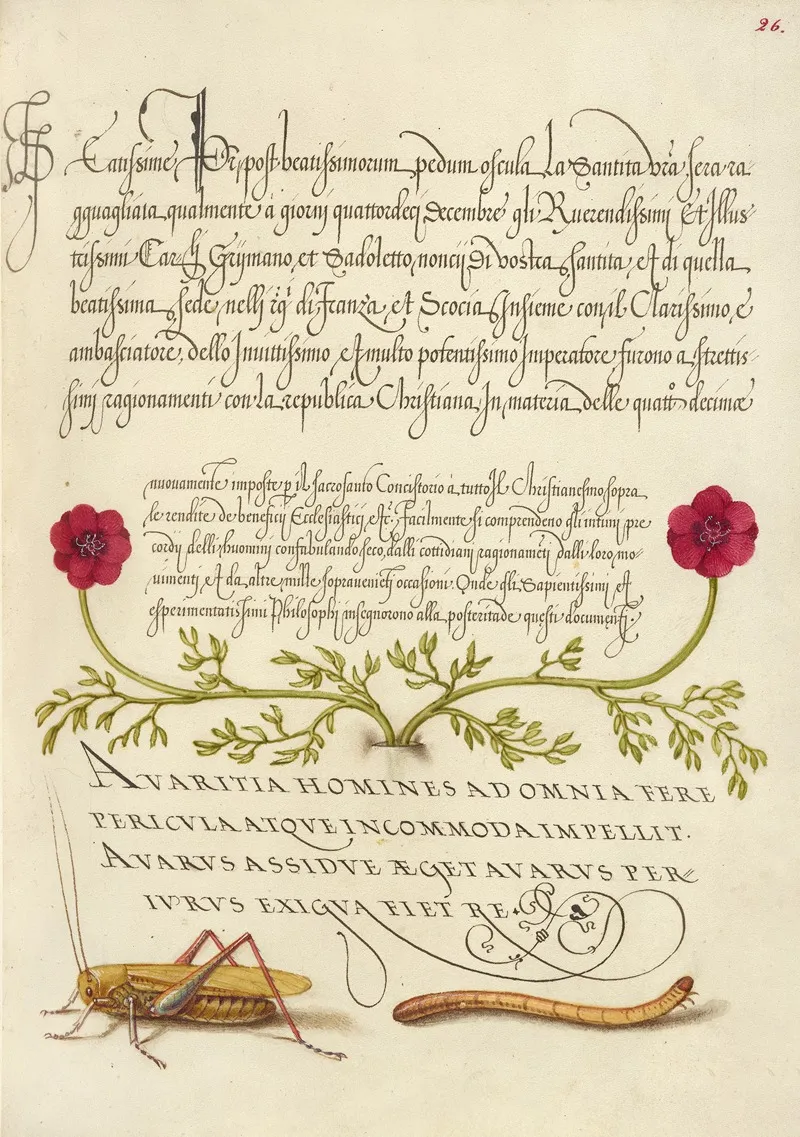 26.
Beatissime Pr, post beatissimorum pedum oscula La Santita vra, sera ra-
gguagliata, qualmente a giorni quattordeci, Decembre gli Ruerendissimi Et Illus-
trissimi Carli Grijmano, et Sadoletto, noncij Di vostra santita, et di quella
beatissima sede, nelli di Franza, et Scocia, Insieme con, il Clarissimo, e
ambasciatore, dello Inuittissimo, et multo potentissimo Imperatore furono a strettis-
simi ragionamenti con La republica Christiana, In, materia, delle quatto decime
nuouamente imposte p il sacrosanto Concistorio a tutto Il Christianesmo sopra
le rendite de beneficij Ecclesiastici, etc. Facilmente si comprendeno gli intimi pre
cordij delli huomini confabulando seco, dalli cottidiani ragionamēti dalli loro, mo-
uimenti, et da altre mille soprauenēti occasioni. Onde gli Sapientissimi et
esperimentatissimi Philosophi insegnorono alla posterita de questi documenti.
AVARITIA HOMINES AD OMNIA FERE
PERICVLA ATQVE INCOMMODA IMPELLIT.
AVARVS ASSIDVE ÆGET AVARVS PER-
IVRVS EXIGVA FIET RE.